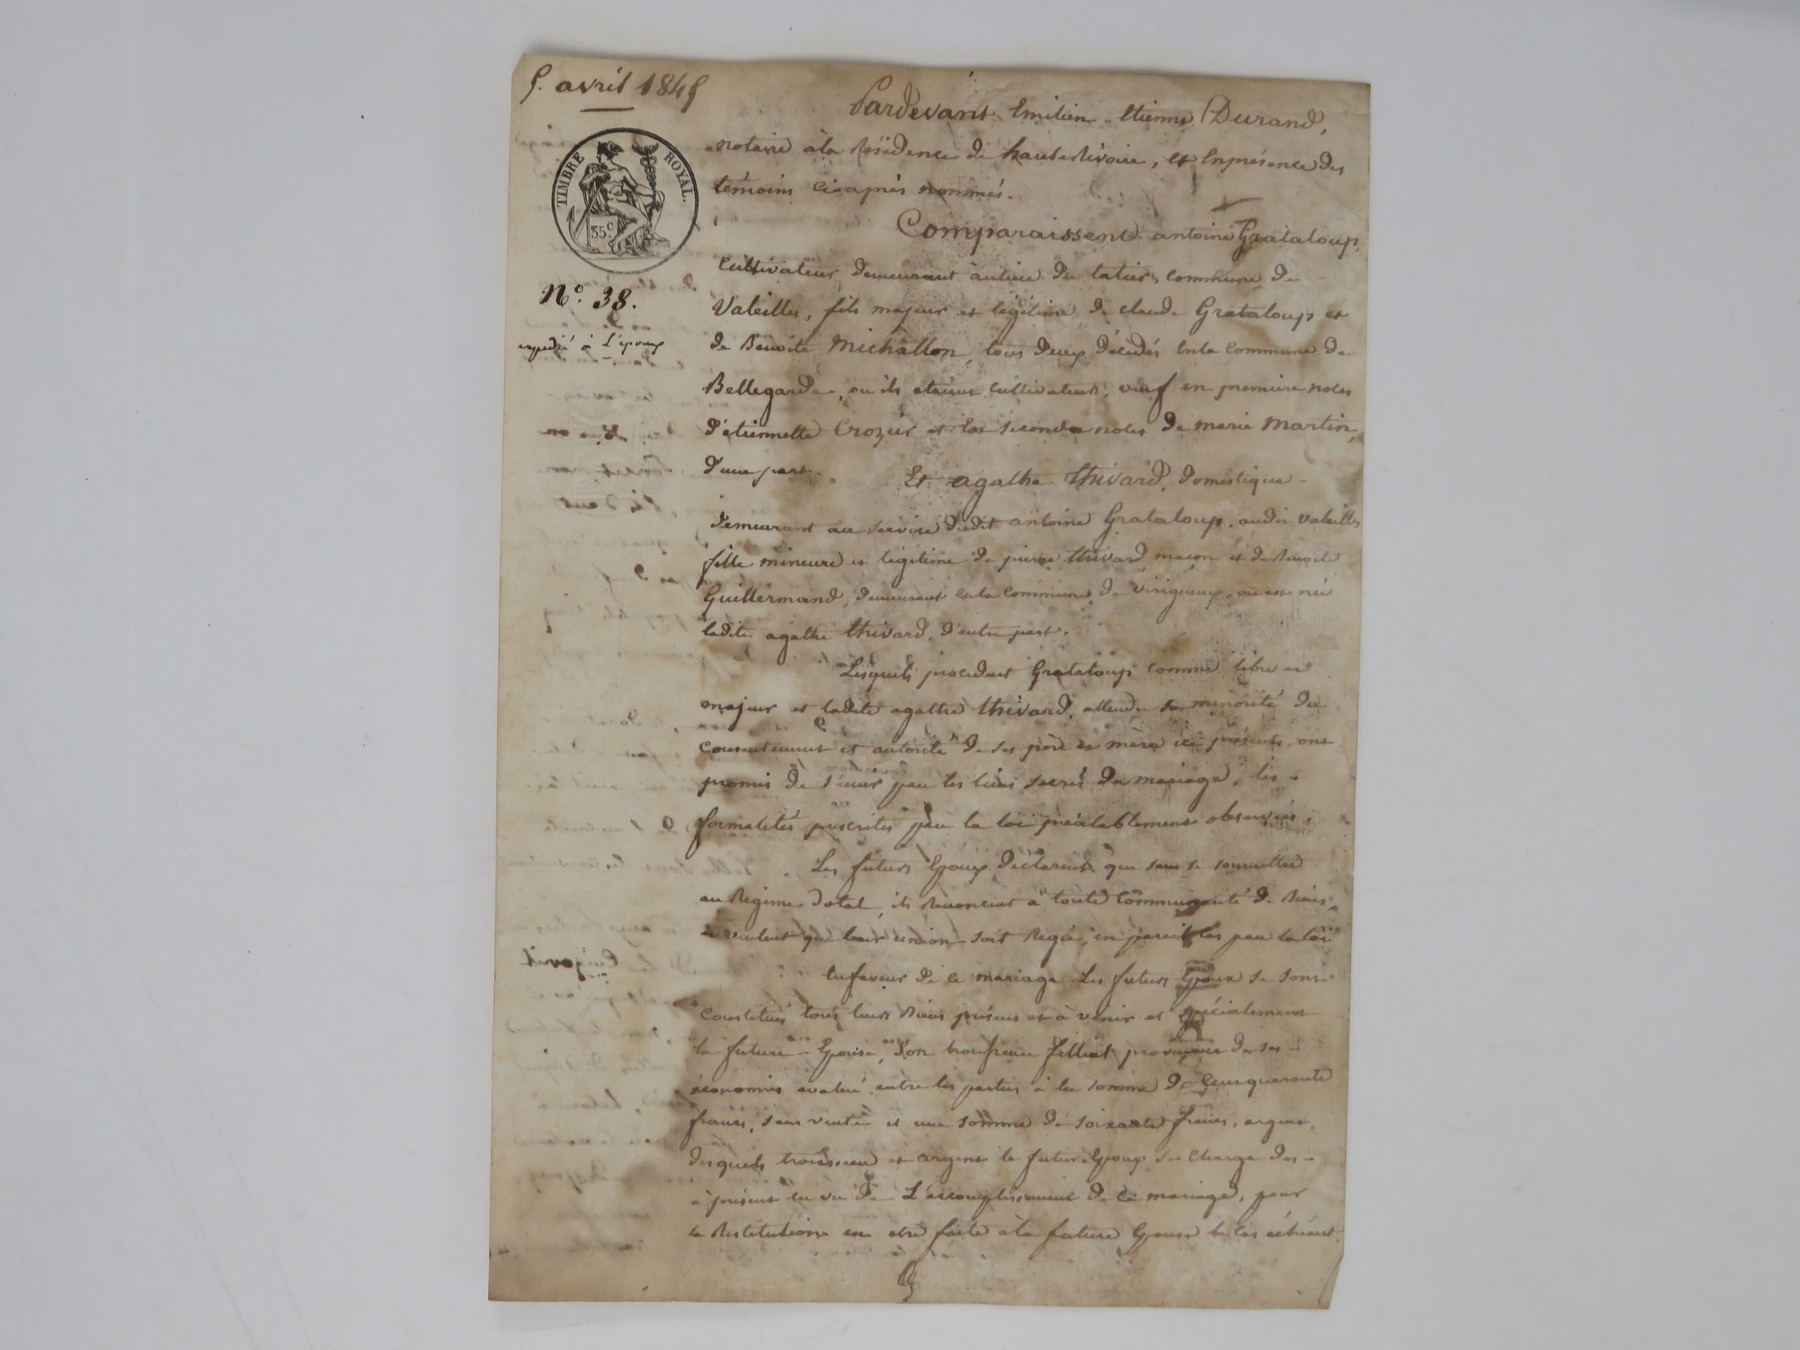 5. avril 1845
Pardevant Emilien-Etienne Durand,
notaire à la Résidence de hauterivoire, et Enprésence des
témoins ci-après nommés.
TIMBRE ROYAL.
35c.
Comparaissent antoine Grataloup,
cultivateur, demeurant au lieu du tatier, commune de
N.o 38.
Valeilles, fils majeur et légitime de claude Grataloup et
expédié à L'époux
de Benoite Michallon, tous deux décédés Enla commune de
Bellegarde, ou ils etaient cultivateurs, veuf en premiere noces
d'etiennette Crozier et En seconde noces de marie Martin,
d'une part.
Et agathe thivard, domestique
demeurant au service dudit antoine Grataloup, audit Valeilles
fille mineure et légitime de pierre thivard, maçon et de Benoite
Guillermand, demeurant enla commune de Virigneux, ou est née
ladite agathe thivard, d'autre part.
Lesquels procédant Grataloup comme libre et
majeur et ladite agathe thivard, attendu sa minorité du
consentement et autorité de ses père et mère ici présents ont
promis de s'unir par les liens sacrés du mariage, les
formalités prescrites par la loi préalablement observées.
Les futurs Epoux déclarent que sans se soumettre
au Régime dotal, ils Renoncent à toute Communauté de Biens,
et veulent que leur union soit Réglée, en pareil cas par la loi
Enfaveur de ce mariage Les futurs Epoux se sont
constitués tous leurs Biens présens et à venir et spécialement
la future Epouse, Son trousseau filial provenant de ses
économies evalué entre les parties à la somme de Centquarante
francs, sans vente et une somme de soixante francs, argent,
desquels trousseau et argent le futur Epoux se charge des
à présent en vu de L'accomplissement de ce mariage, pour
la Restitution en etre faite à la future Epouse le cas échéant.